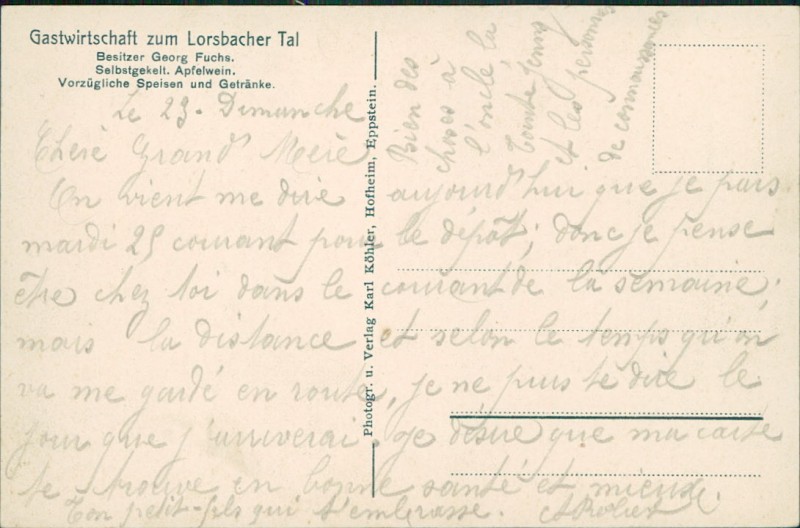 Gastwirtschaft zum Lorsbacher Tal
Besitzer Georg Fuchs.
Selbstgekelt. Apfelwein.
Vorzügliche Speisen und Getränke.
Photogr. u. Verlag Karl Köhler, Hofheim, Eppstein.
Le 23. Dimanche
Chère Grand Mère
On vient me dire aujourd'hui que je pars
mardi 25 courant pour le dépôt; donc je pense
être chez toi dans le courant de la semaine;
mais la distance et selon le temps qu'on
va me gardé en route, je ne puis te dire le
jour que j'arriverai. Je désire que ma carte
te trouve en bonne santé et mieux.
Ton petit-fils qui t'embrasse.
Bien des
choses à
l'oncle, la
Tante Jenny
et les personnes
de connaissances